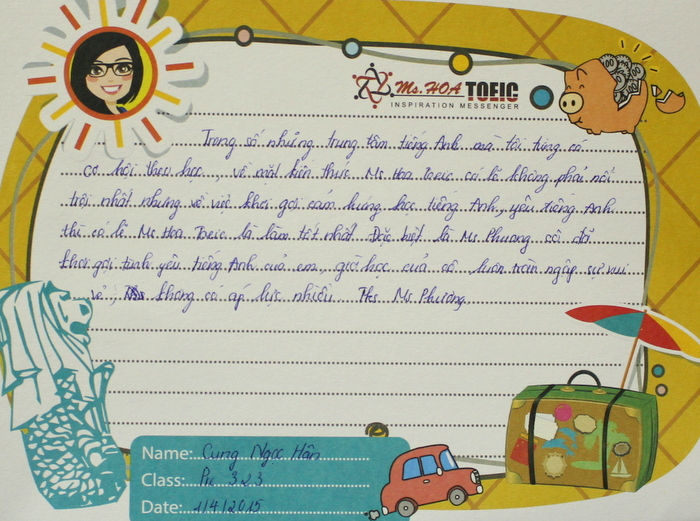 Ms. HOA TOEIC
INSPIRATION MESSENGER
Trong số những trung tâm tiếng Anh mà tôi từng có
cơ hội theo học, về mặt kiến thức Ms Hoa toeic có lẽ không phải nổi
trội nhất nhưng về việc khơi gợi cảm hứng học tiếng Anh, yêu tiếng Anh
thì có lẽ Ms Hoa Toeic là làm tốt nhất. Đặc biệt là Ms Phương cô đã
khơi gợi tình yêu tiếng Anh của em, giờ học của cô luôn tràn ngập sự vui
vẻ, không có áp lực nhiều. Tks Ms Phương
Name: Cung Ngọc Hân
Class: Pre 323
Date: 1/4/2015